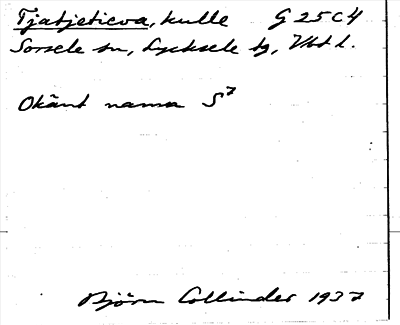 Tjatjetieva, kulle G 25 C 4
Sorsele sn, Lycksele tg, Vbt l.
Okänt namn S⁷
Björn Collinder 1937